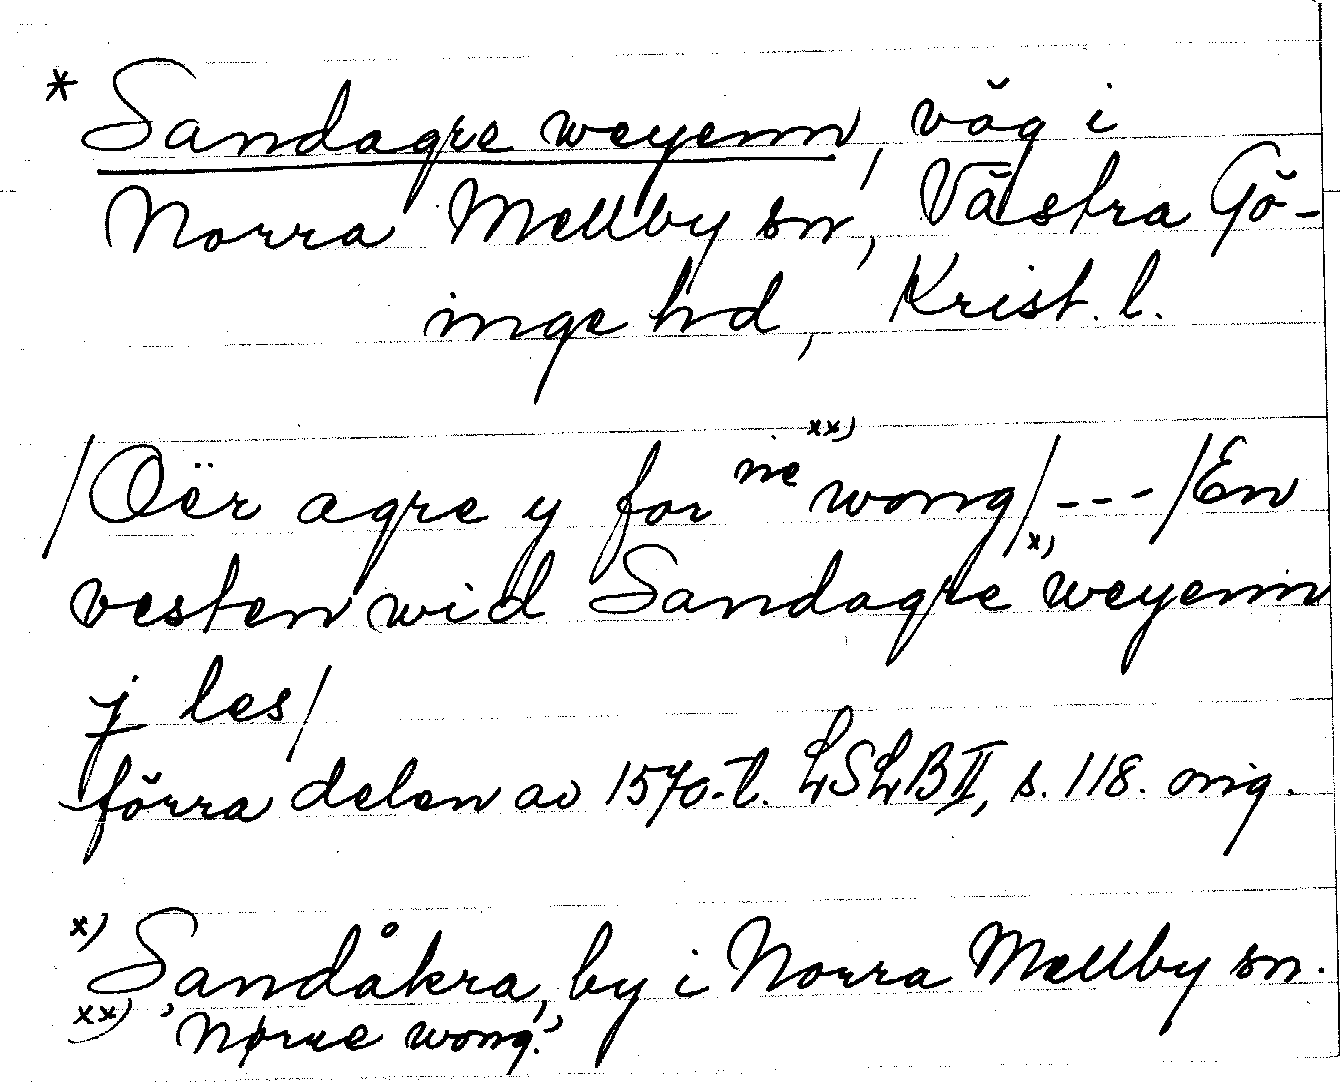 * Sandagre weyenn, väg i
Norra Mellby sn, Västra Gö-
inge hd, Krist. l.
/Oër agre y for ne xx) wong/ --- /En
vesten wid Sandagre x) weyenn
j les/
förra delen av 1570-t. LSLB II, s. 118. orig.
x) Sandåkra, by i Norra Mellby sn.
xx) 'Nørre wong.'